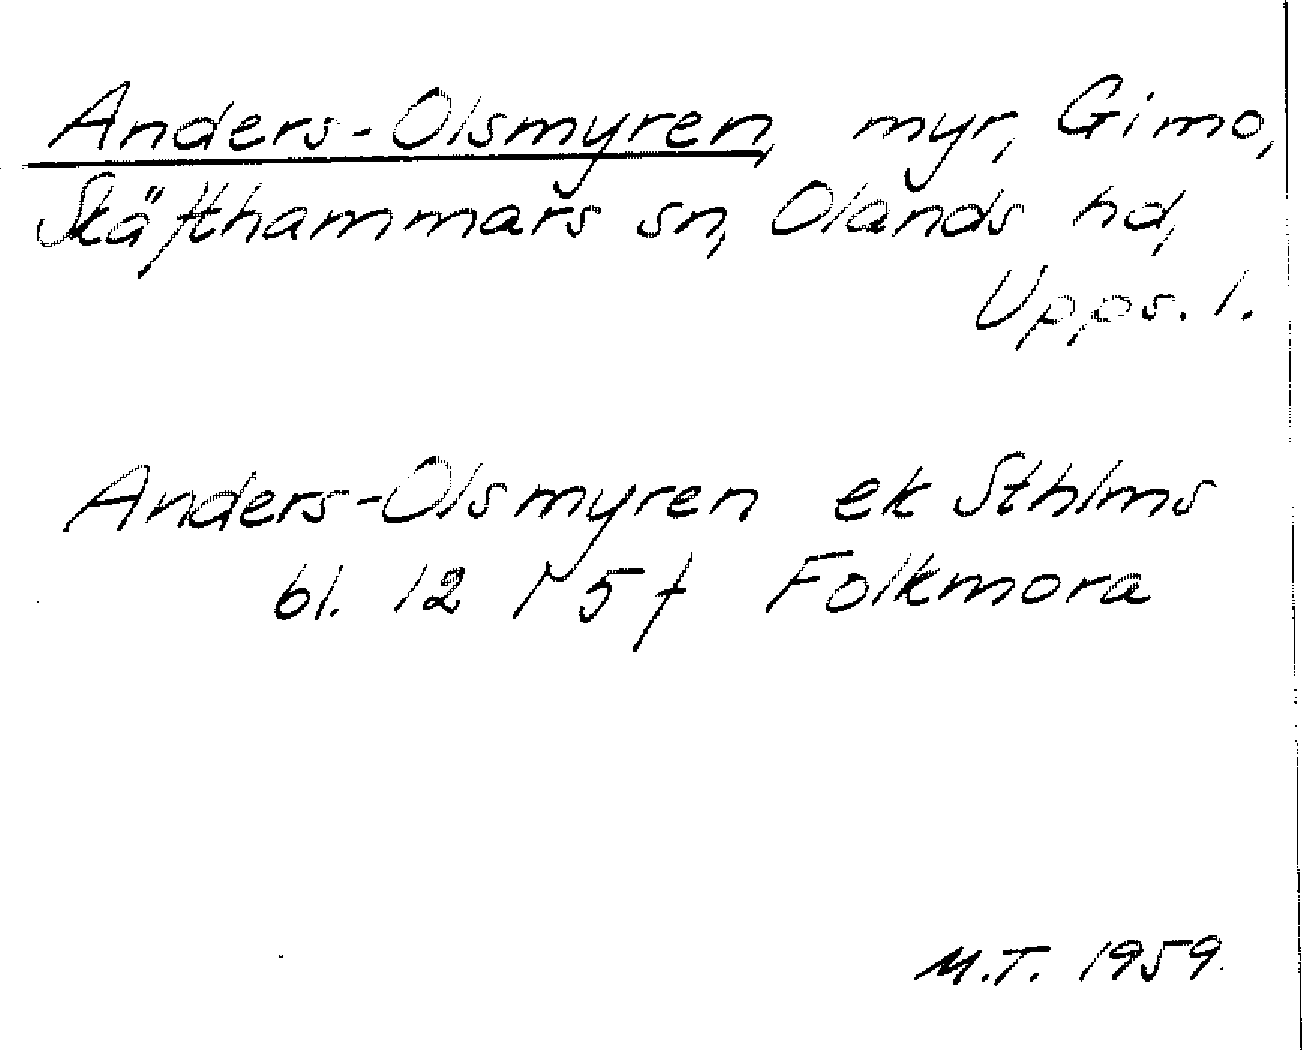 Anders-Olsmyren, myr, Gimo,
Skäfthammars sn, Olands hd,
Upps. l.
Anders-Olsmyren ek Sthlms
bl. 12 r 5 f Folkmora
M.T. 1959.